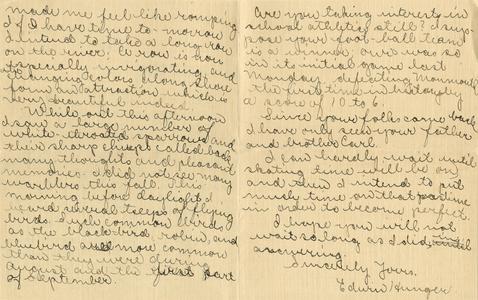 made me feel like romping
if I have time to-morrow
I intend to take a long row
on the river. A row is now
especially invigorating and
changing colors along shore
form an attraction which is
very beautiful indeed.
While out this afternoon
I saw a large number of
white-throated sparrows and
their sharp cheeps called back
many thoughts and pleasant
memories. I did not see many
warblers this fall. This
morning before daylight I
heard several tseeps of flying
birds. Such common birds
as the blackbird, robin, and
bluebird are more common
than they were during
August and the first part
of September.
Are you taking interest in
school athletics still? I sup-
pose your foot-ball team
is a winner, ours was so
in its initial game last
Monday, defeating Monmouth
the first time in history by
a score of 10 to 6.
Since your folks came back
I have only seen your father
and brother Carl.
I can hardly wait until
skating time will be on
and then I intend to put
much time on that pastime
in order to become perfect.
I hope you will not
wait so long as I did until
answering.
Sincerely Yours,
Edwin Hunger.